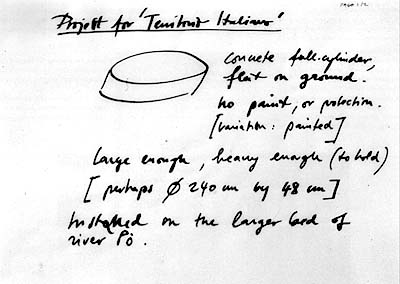 PAGE 1/2
Project for "Territorio Italiano"
concrete full-cylinder,
flat on ground.
no paint, or protection.
[variation: painted]
large enough, heavy enough (to hold)
[perhaps Ø 240 cm by 48 cm]
Installed on the larger bed of
river Pò.